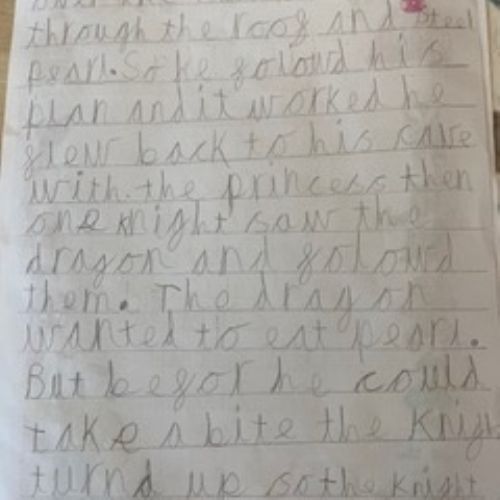 through the roof and steel
pearl. So he foloud his
plan and it worked he
flew back to his cave
with. the princess then
one knight saw the
dragon and foloud
them. The dragon
wanted to eat pearl.
But befor he could
take a bite the Knigh
turnd up so the Knight